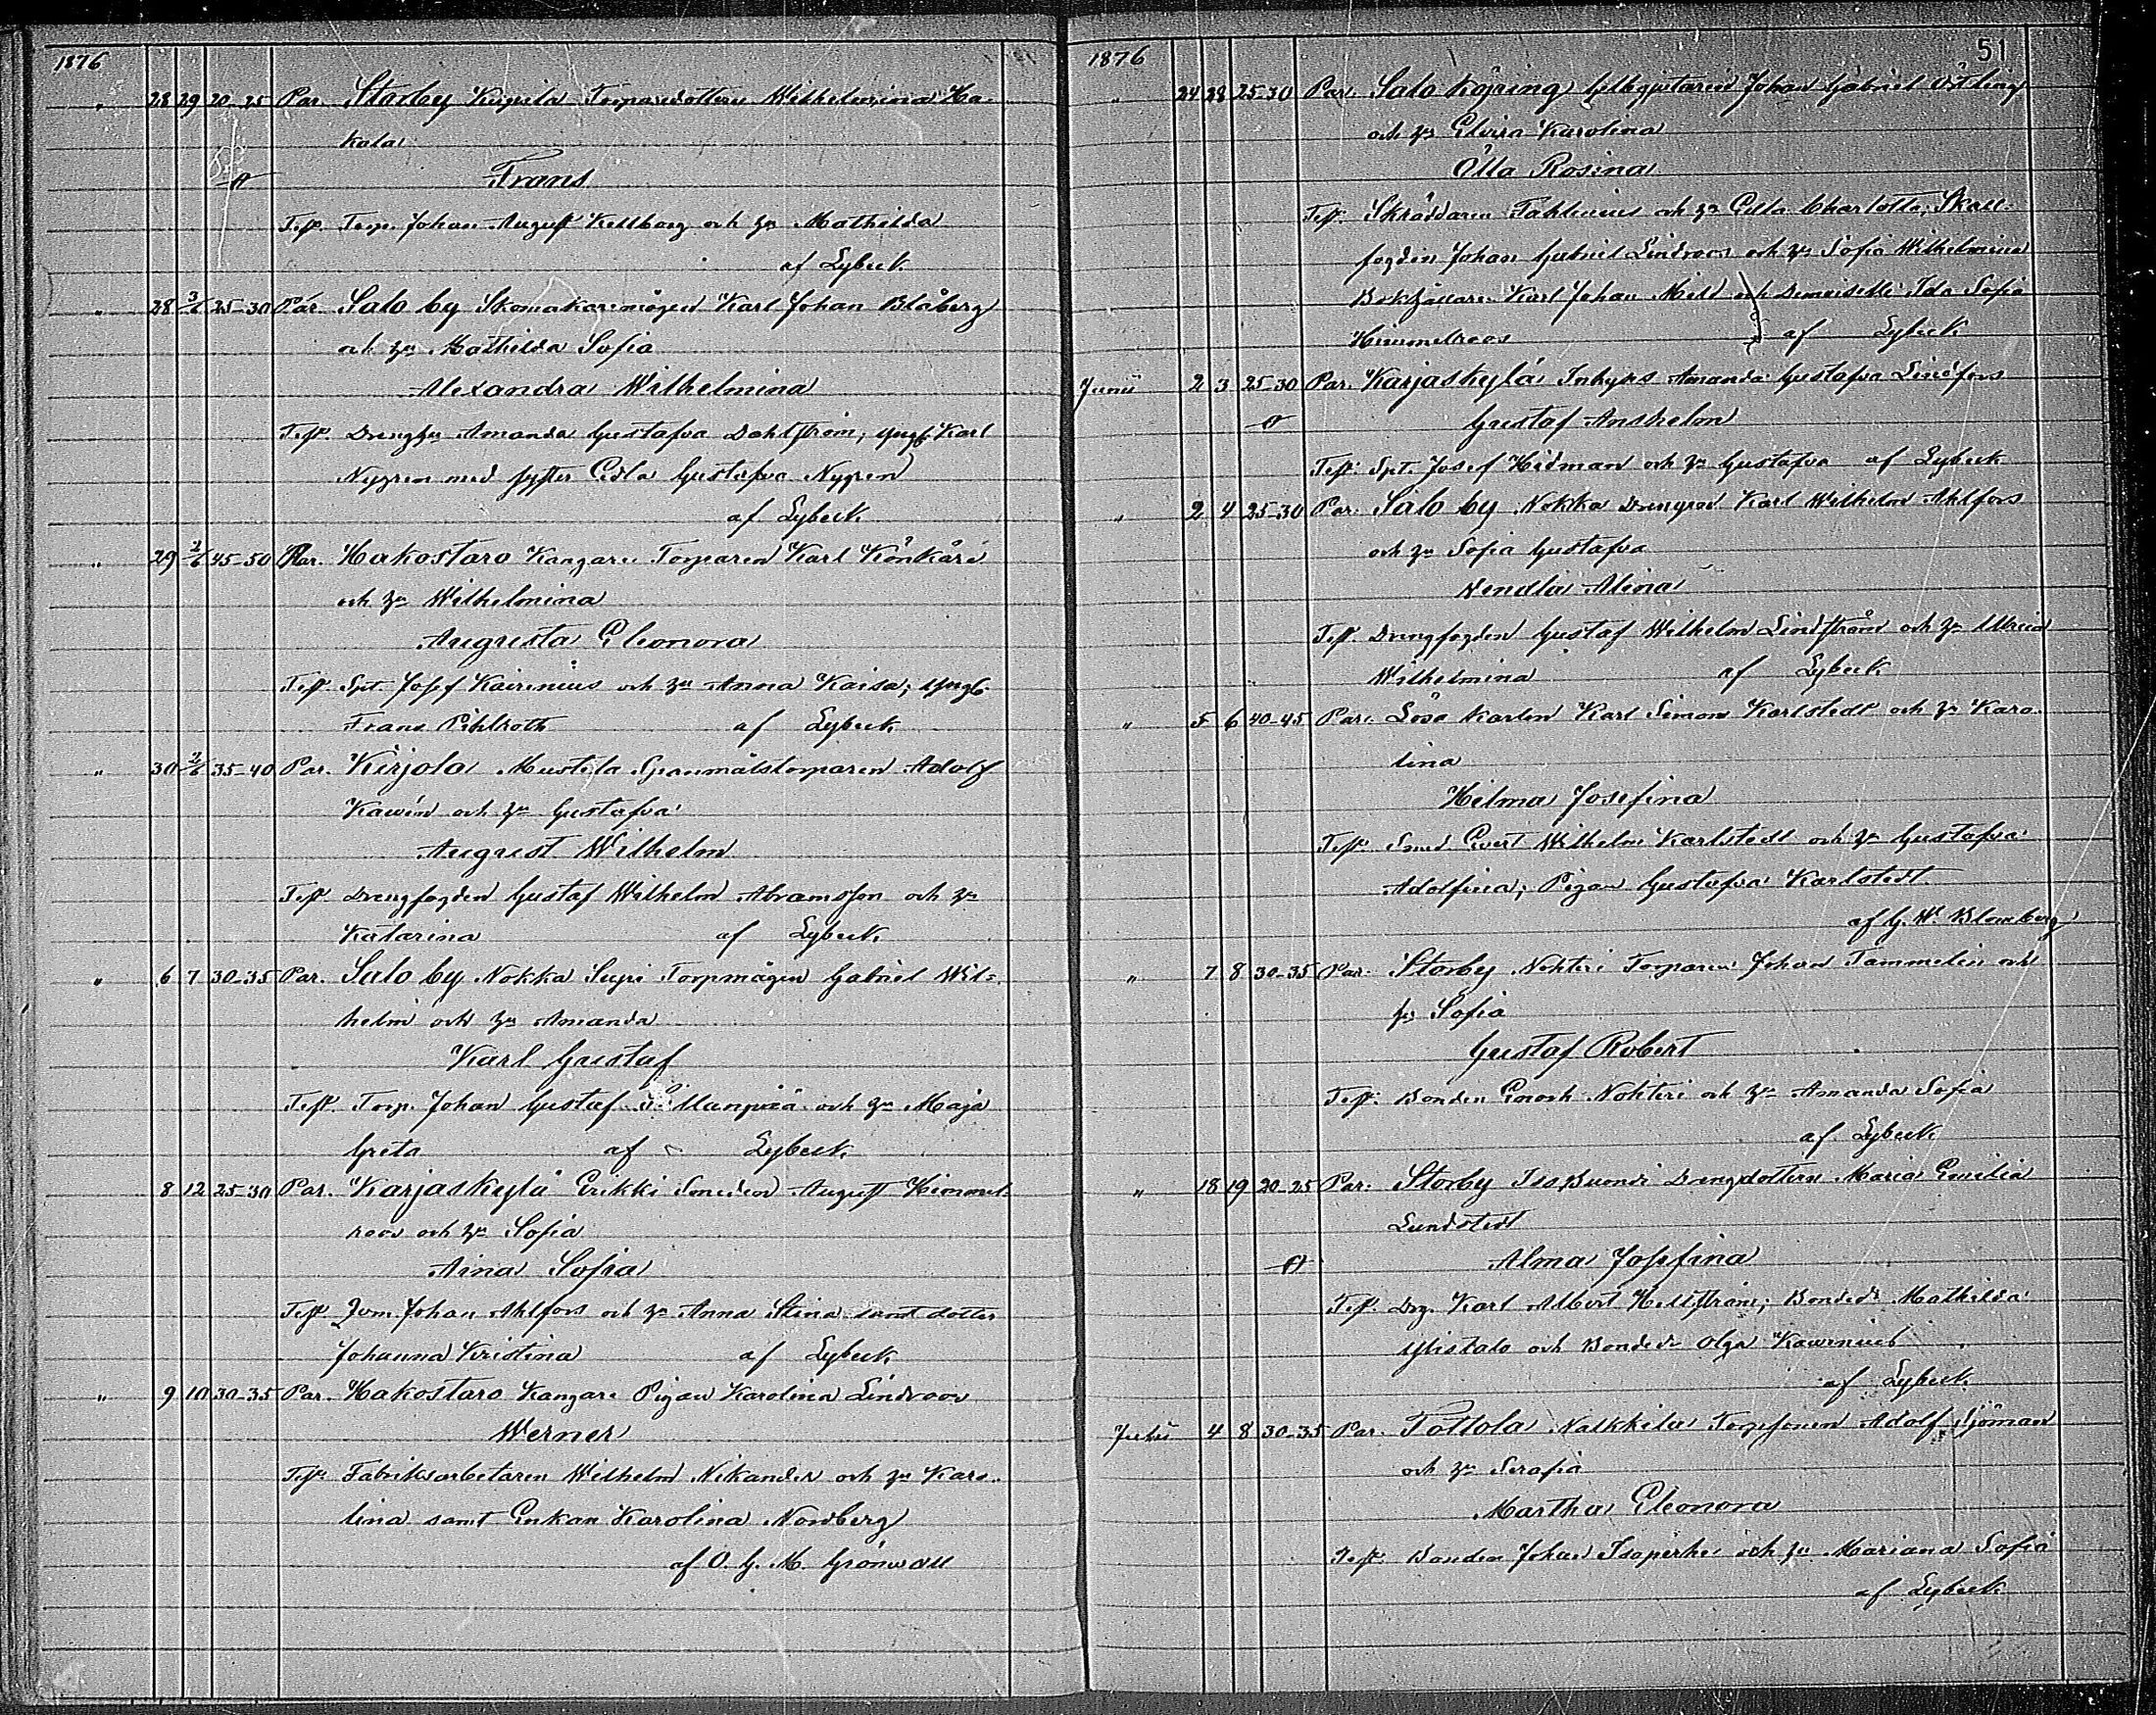 1876
" 28 29 20-25 Par. Storby Torparedottern Wilhelmina Ha-
kola
Frans
Test. Torp. Johan August Kellberg och h:u Mathilda
af Lybeck.
" 28 3/6 25-30 Par. Salo by Skomakaremågen Karl Johan Blåberg
och h:u Mathilda Sofia
Alexandra Wilhelmina
Test. Drengh:u Amanda Gustafva Dahlström; yngl. Karl
Nygren med syster Edla Gustafva Nygren
af Lybeck.
" 29 2/6 45-50 Par. Hakostaro Kangare Torparen Karl Könkäre
och h:u Wilhelmina
Augusta Eleonora
Test. Spt. Josef Kairenius och h:u Anna Kaisa; yngl.
Frans Pihlroth af Lybeck.
" 30 2/6 35-40 Par. Kirjola Mustila Spanmålstorparen Adolf
Kawén och h:u Gustafva
August Wilhelm
Test. Drengfogden Gustaf Wilhelm Abramsson och h:u
Katarina af Lybeck.
" 6 7 30-35 Par. Salo by Nokka Supi Torpmågen Gabriel Wil-
helm och h:u Amanda
Karl Gustaf
Test. Torp. Johan Gustaf och h:u Maja
Greta af Lybeck.
8 12 25-30 Par. Karjaskylä Erikki Smeden August Himmel-
roos och h:u Sofia
Aina Sofia
Test. Johan Ahlfors och h:u Anna Stina samt dotter
Johanna Kristina af Lybeck.
" 9 10 30-35 Par. Hakostaro Kangare Pigan Karolina Lindroos
Werner
Test. Fabriksarbetaren Wilhelm Nikander och h:u Karo-
lina samt Enkan Karolina Nordberg
af O. G. M. Grönwall
1876 51
" 24 28 25-30 Par. Salo Köping Johan Gabriel Östling
och h:u Elvira Karolina
Olla Rosina
Test. Skräddaren Tahlenius och h:u Edla Charlotta; Skall-
fogden Johan Gabriel Lindroos och h:u Sofia Wilhelmina
Bokhållaren Karl Johan Mell och Demoiselle Ida Sofia
Himmelroos af Lybeck.
Junii 2 3 25-30 Par. Karjaskylä Inhyses Amanda Gustafva Lindfors
Gustaf Anshelm
Test. Spt. Josef Hidman och h:u Gustafva af Lybeck
" 2 4 25-30 Par. Salo by Nokka Drengen Karl Wilhelm Ahlfors
och h:u Sofia Gustafva
Vendla Alina
Test. Drengfogden Gustaf Wilhelm Lindström och h:u Maria
Wilhelmina af Lybeck.
" 5 6 40-45 Par. Lösa Karlen Karl Simon Karlstedt och h:u Karo-
lina
Hilma Josefina
Test. Smed Evert Wilhelm Karlstedt och h:u Gustafva
Adolfina; Pigan Gustafva Karlstedt.
af G. W. Blomberg
" 7 8 30-35 Par. Storby Nohteri Torparen Johan Tammelin och
h:u Sofia
Gustaf Robert
Test. Bonden Enosh Nohteri och h:u Amanda Sofia
af Lybeck.
" 18 19 20-25 Par. Storby Drengdottern Maria Emilia
Lundstedt
Alma Josefina
Test. Drg. Karl Albert Hellström; Bonded. Mathilda
Ylistalo och Bonded. Olga Kawenius
af Lybeck.
Julii 4 8 30-35 Par. Pottola Nalkkila Torpsonen Adolf Sjöman
och h:u Serafia
Martha Eleonora
Test. Bonden Johan Isoperhe och h:u Mariana Sofia
af Lybeck.